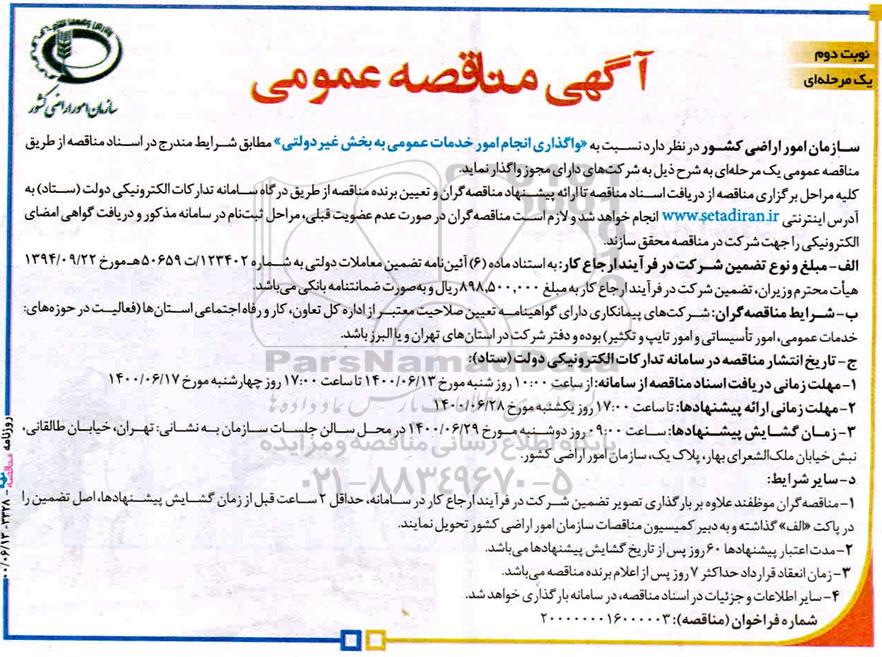 نوبت دوم
یک مرحله‌ای
آگهی مناقصه عمومی
سازمان امور اراضی کشور
سازمان امور اراضی کشور در نظر دارد نسبت به «واگذاری انجام امور خدمات عمومی به بخش غیر دولتی» مطابق شرایط مندرج در اسناد مناقصه از طریق
مناقصه عمومی یک مرحله‌ای به شرح ذیل به شرکت‌های دارای مجوز واگذار نماید.
کلیه مراحل برگزاری مناقصه از دریافت اسناد مناقصه تا ارائه پیشنهاد مناقصه‌گران و تعیین برنده مناقصه از طریق درگاه سامانه تدارکات الکترونیکی دولت (ستاد) به
آدرس اینترنتی www.setadiran.ir انجام خواهد شد و لازم است مناقصه‌گران در صورت عدم عضویت قبلی، مراحل ثبت‌نام در سامانه مذکور و دریافت گواهی امضای
الکترونیکی را جهت شرکت در مناقصه محقق سازند.
الف- مبلغ و نوع تضمین شرکت در فرآیند ارجاع کار: به استناد ماده (۶) آئین‌نامه تضمین معاملات دولتی به شماره ۱۲۳۴۰۲/ت ۵۰۶۵۹هـ مورخ ۱۳۹۴/۰۹/۲۲
هیأت محترم وزیران، تضمین شرکت در فرآیند ارجاع کار به مبلغ ۸۹۸,۵۰۰,۰۰۰ ریال و به‌صورت ضمانتنامه بانکی می‌باشد.
ب- شرایط مناقصه‌گران: شرکت‌های پیمانکاری دارای گواهینامه تعیین صلاحیت معتبر از اداره کل تعاون، کار و رفاه اجتماعی استان‌ها (فعالیت در حوزه‌های:
خدمات عمومی، امور تأسیساتی و امور تایپ و تکثیر) بوده و دفتر شرکت در استان‌های تهران و یا البرز باشد.
ج- تاریخ انتشار مناقصه در سامانه تدارکات الکترونیکی دولت (ستاد):
۱- مهلت زمانی دریافت اسناد مناقصه از سامانه: از ساعت ۱۰:۰۰ روز شنبه مورخ ۱۴۰۰/۰۶/۱۳ تا ساعت ۱۷:۰۰ روز چهارشنبه مورخ ۱۴۰۰/۰۶/۱۷
۲- مهلت زمانی ارائه پیشنهادها: تا ساعت ۱۷:۰۰ روز یکشنبه مورخ ۱۴۰۰/۰۶/۲۸
۳- زمان گشایش پیشنهادها: ساعت ۰۹:۰۰ روز دوشنبه مورخ ۱۴۰۰/۰۶/۲۹ در محل سالن جلسات سازمان به نشانی: تهران، خیابان طالقانی،
نبش خیابان ملک‌الشعرای بهار، پلاک یک، سازمان امور اراضی کشور.
د- سایر شرایط:
۱- مناقصه‌گران موظفند علاوه بر بارگذاری تصویر تضمین شرکت در فرآیند ارجاع کار در سامانه، حداقل ۲ ساعت قبل از زمان گشایش پیشنهادها، اصل تضمین را
در پاکت «الف» گذاشته و به دبیر کمیسیون مناقصات سازمان امور اراضی کشور تحویل نمایند.
۲- مدت اعتبار پیشنهادها ۶۰ روز پس از تاریخ گشایش پیشنهادها می‌باشد.
۳- زمان انعقاد قرارداد حداکثر ۷ روز پس از اعلام برنده مناقصه می‌باشد.
۴- سایر اطلاعات و جزئیات در اسناد مناقصه، در سامانه بارگذاری خواهد شد.
شماره فراخوان (مناقصه): ۲۰۰۰۰۰۰۰۱۶۰۰۰۰۰۳
ParsNamadData
پایگاه اطلاع رسانی مناقصه و مزایده
۰۲۱-۸۸۳۴۹۶۷۰-۵
روزنامه مناقصه